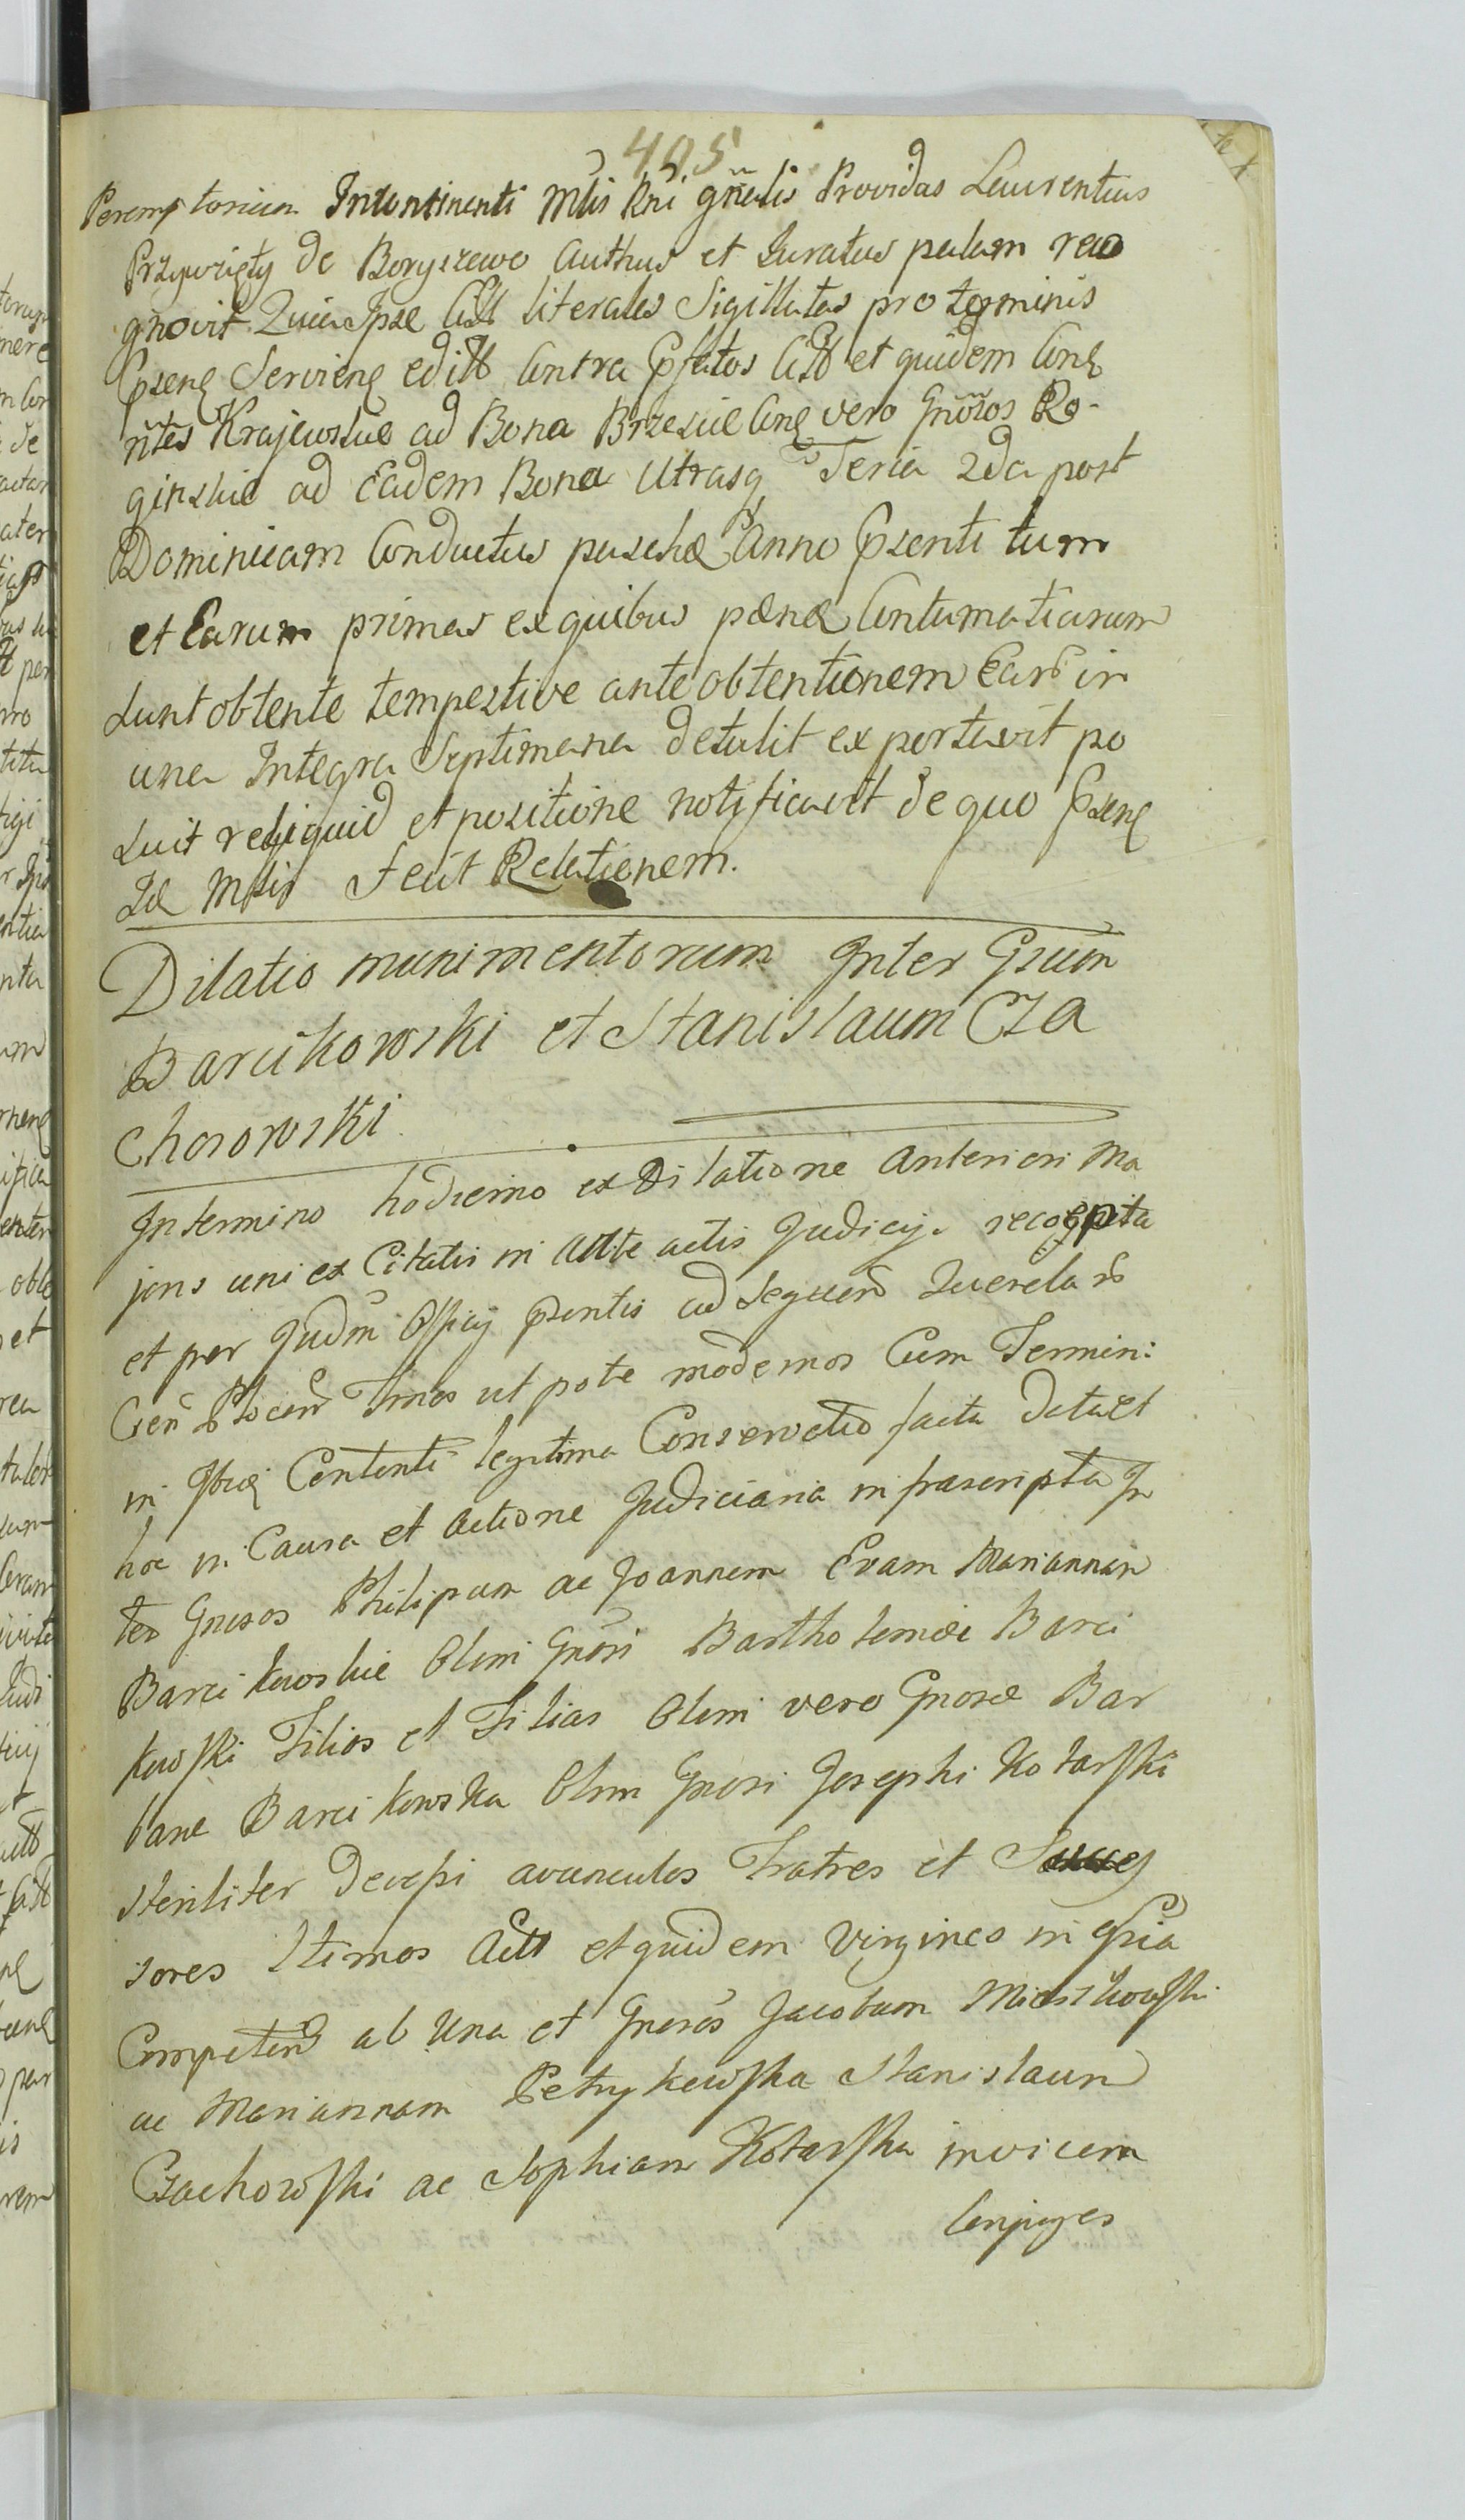 405
Peremptorium Incontinenti Mlis Rni gnalis Providus Laurentius
Przywzięty de Boryszewo Authus et Juratus palam reco
gnovit Quia Ipse Citt literales Sigillatas pro terminis
Psenq Servienq editt Contra Psatos Citt et quidem Conq
ntes Krajewskie ad Bona Brzeskie Conq vero Gnosos Ro-
ginskie ad Eadem Bona Utrasq Feria 2da post
Dominicam Conductus paschæ Anno Psenti tum
et Earum primas ex quibus pænæ Contumatiarum
sunt obtente tempestive ante obtentionem Earr in
una Integra Septimana detulit exportavit po
suit reliquid et positione notificavit de quo Psenq
Se Mlis fecit Relationem.
Dilatio munimentorum Inter Gsum
Barcikowski et Stanislaum Cza
chorowski
In termino hodierno ex Dilatione Anteriori Ma
jons uni ex Citatis in Actte actis Judicij recepta
et per Judm Officij Psentis ad Sequen Querelar
Gen Plocen Tmos ut pote modernos Cum Termini
in Ipsoq Contenti legitima Conservatio facta data et
hoc in Causa et Actione Judiciaria infrascripta In
ter Gnosos Philipum ac Joannem Evam Mariannam
Barcikowskie Olim Gnosi Bartholemæi Barci
kowski Filios et Filias Olim vero Gnosæ Bar
bare Barcikowska Olim Gnosi Josephi Kotarski
steriliter Decessi avunculos Fratres et Succes
sores Ltimos Actt et quidem Virgines in Assia
Competen ab Una et Gnosos Jacobum Mioszkowski
ac Mariannam Petrykowska Stanislaum
Czachowski ac Sophiam Kotarska invicem
Conjuges